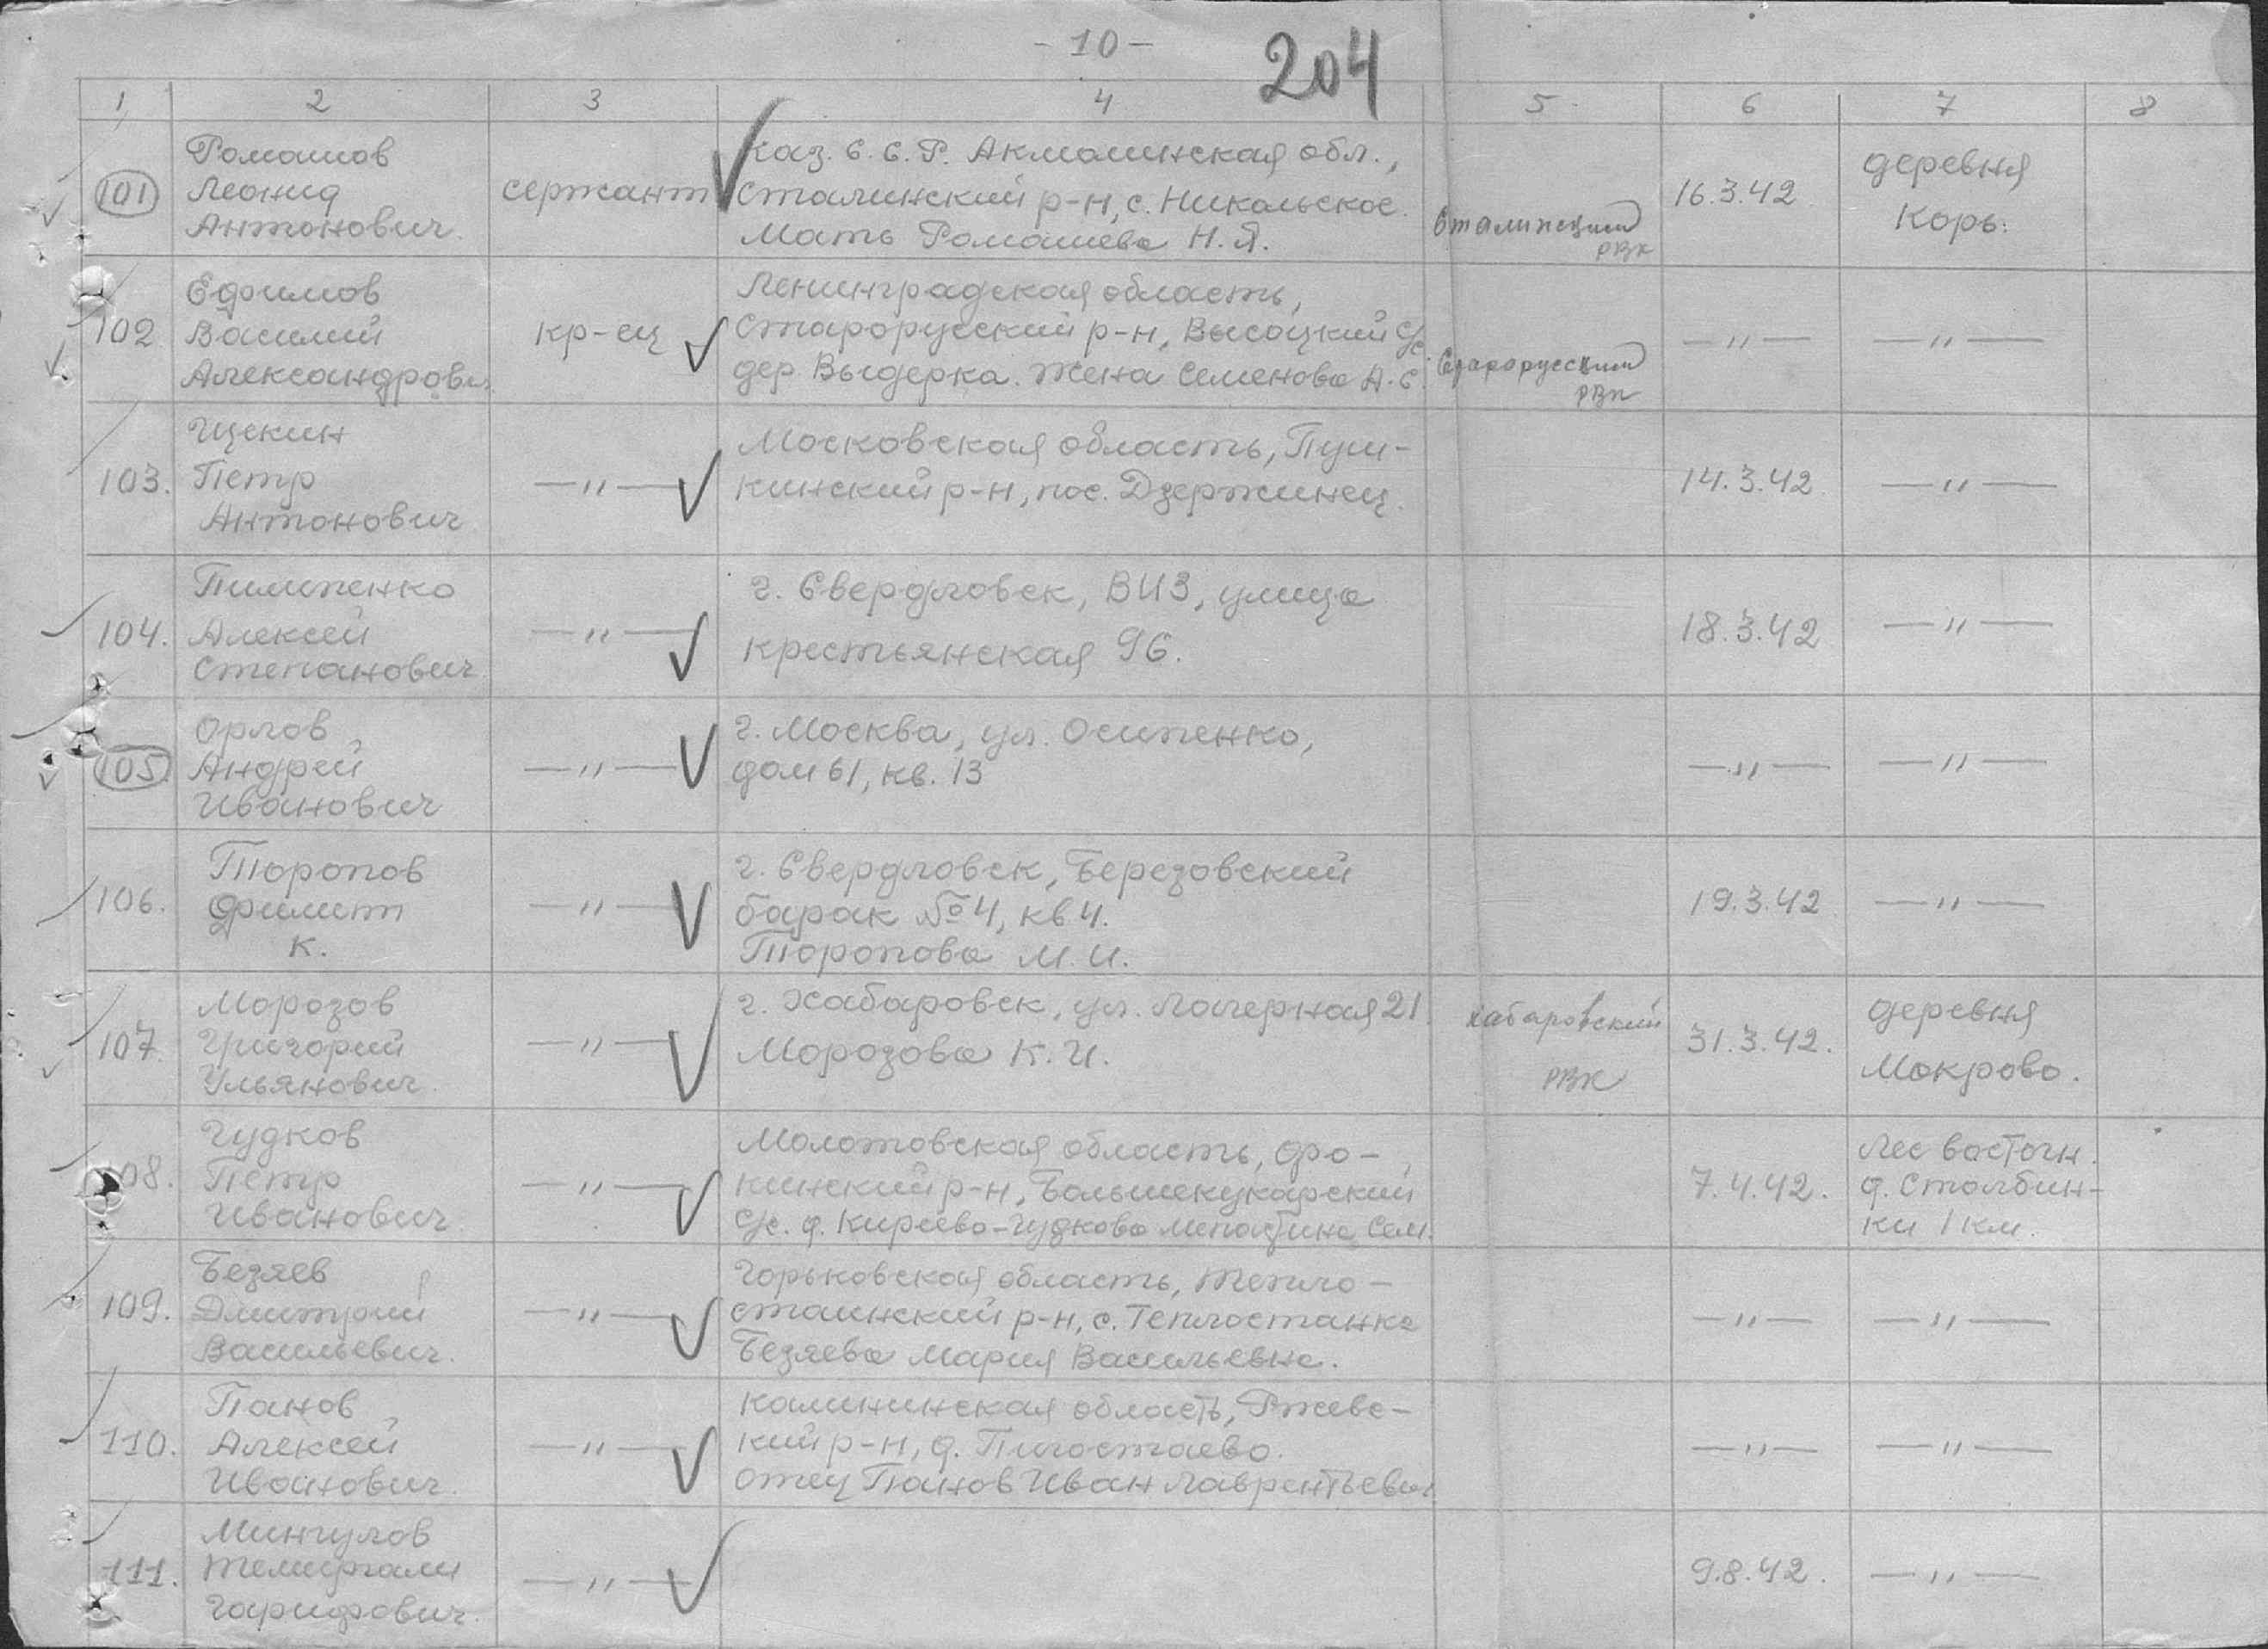 - 10 -
204
1 2 3 4 5 6 7 8
Ромашов
Леонид
Антонович.
101
сержант
Каз. С.С.Р. Акмолинская обл.,
Сталинский р-н, с. Никольское.
Мать Ромашева Н.Я.
Сталинский
РВК
16.3.42
деревня
Корь.
Ефимов
102 Василий
Александрови
кр-ец
Ленинградская область,
Старорусский р-н, Высоцкий с/с
дер. Выдерка. Жена Семенова А.С.
Старорусский
РВК
—"— —"—
103. Петр
Антонович
—"—
Московская область, Пуш-
кинский р-н, пос. Дзержинец.
14.3.42 —"—
Пилипенко
104. Алексей
Степанович
—"—
г. Свердловск, ВИЗ, улица
крестьянская 96.
18.3.42 —"—
Орлов
105 Андрей
Иванович
—"—
г. Москва, ул. Осипенко,
дом 61, кв. 13
—"— —"—
Торопов
106. Филипп
К.
—"—
г. Свердловск, Березовский
барак №4, кв 4.
Торопова М.И.
19.3.42 —"—
Морозов
107 Григорий
Ульянович.
—"—
г. Хабаровск, ул. Лагерная 21.
Морозова К.И.
Хабаровский
РВК
31.3.42.
деревня
Мокрово.
Чудков
108. Петр
Иванович.
—"—
Молотовская область, Фо-
кинский р-н, Большекукарский
с/с. д. Киреево-Чудкова Сем.
7.4.42.
Лес восточн.
д. Столбин-
ки 1 км.
Безяев
109. Дмитрий
Васильевич.
—"—
Горьковская область, Тепло-
станский р-н, с. Теплостанка
Безяева Мария Васильевна.
—"— —"—
Панов
110. Алексей
Иванович.
—"—
Калининская область, Ржевс-
кий р-н, д.
Отец Панов Иван Лаврентьевич
—"— —"—
Мингулов
111. Темиргали
Гарифович.
—"—
9.8.42. —"—